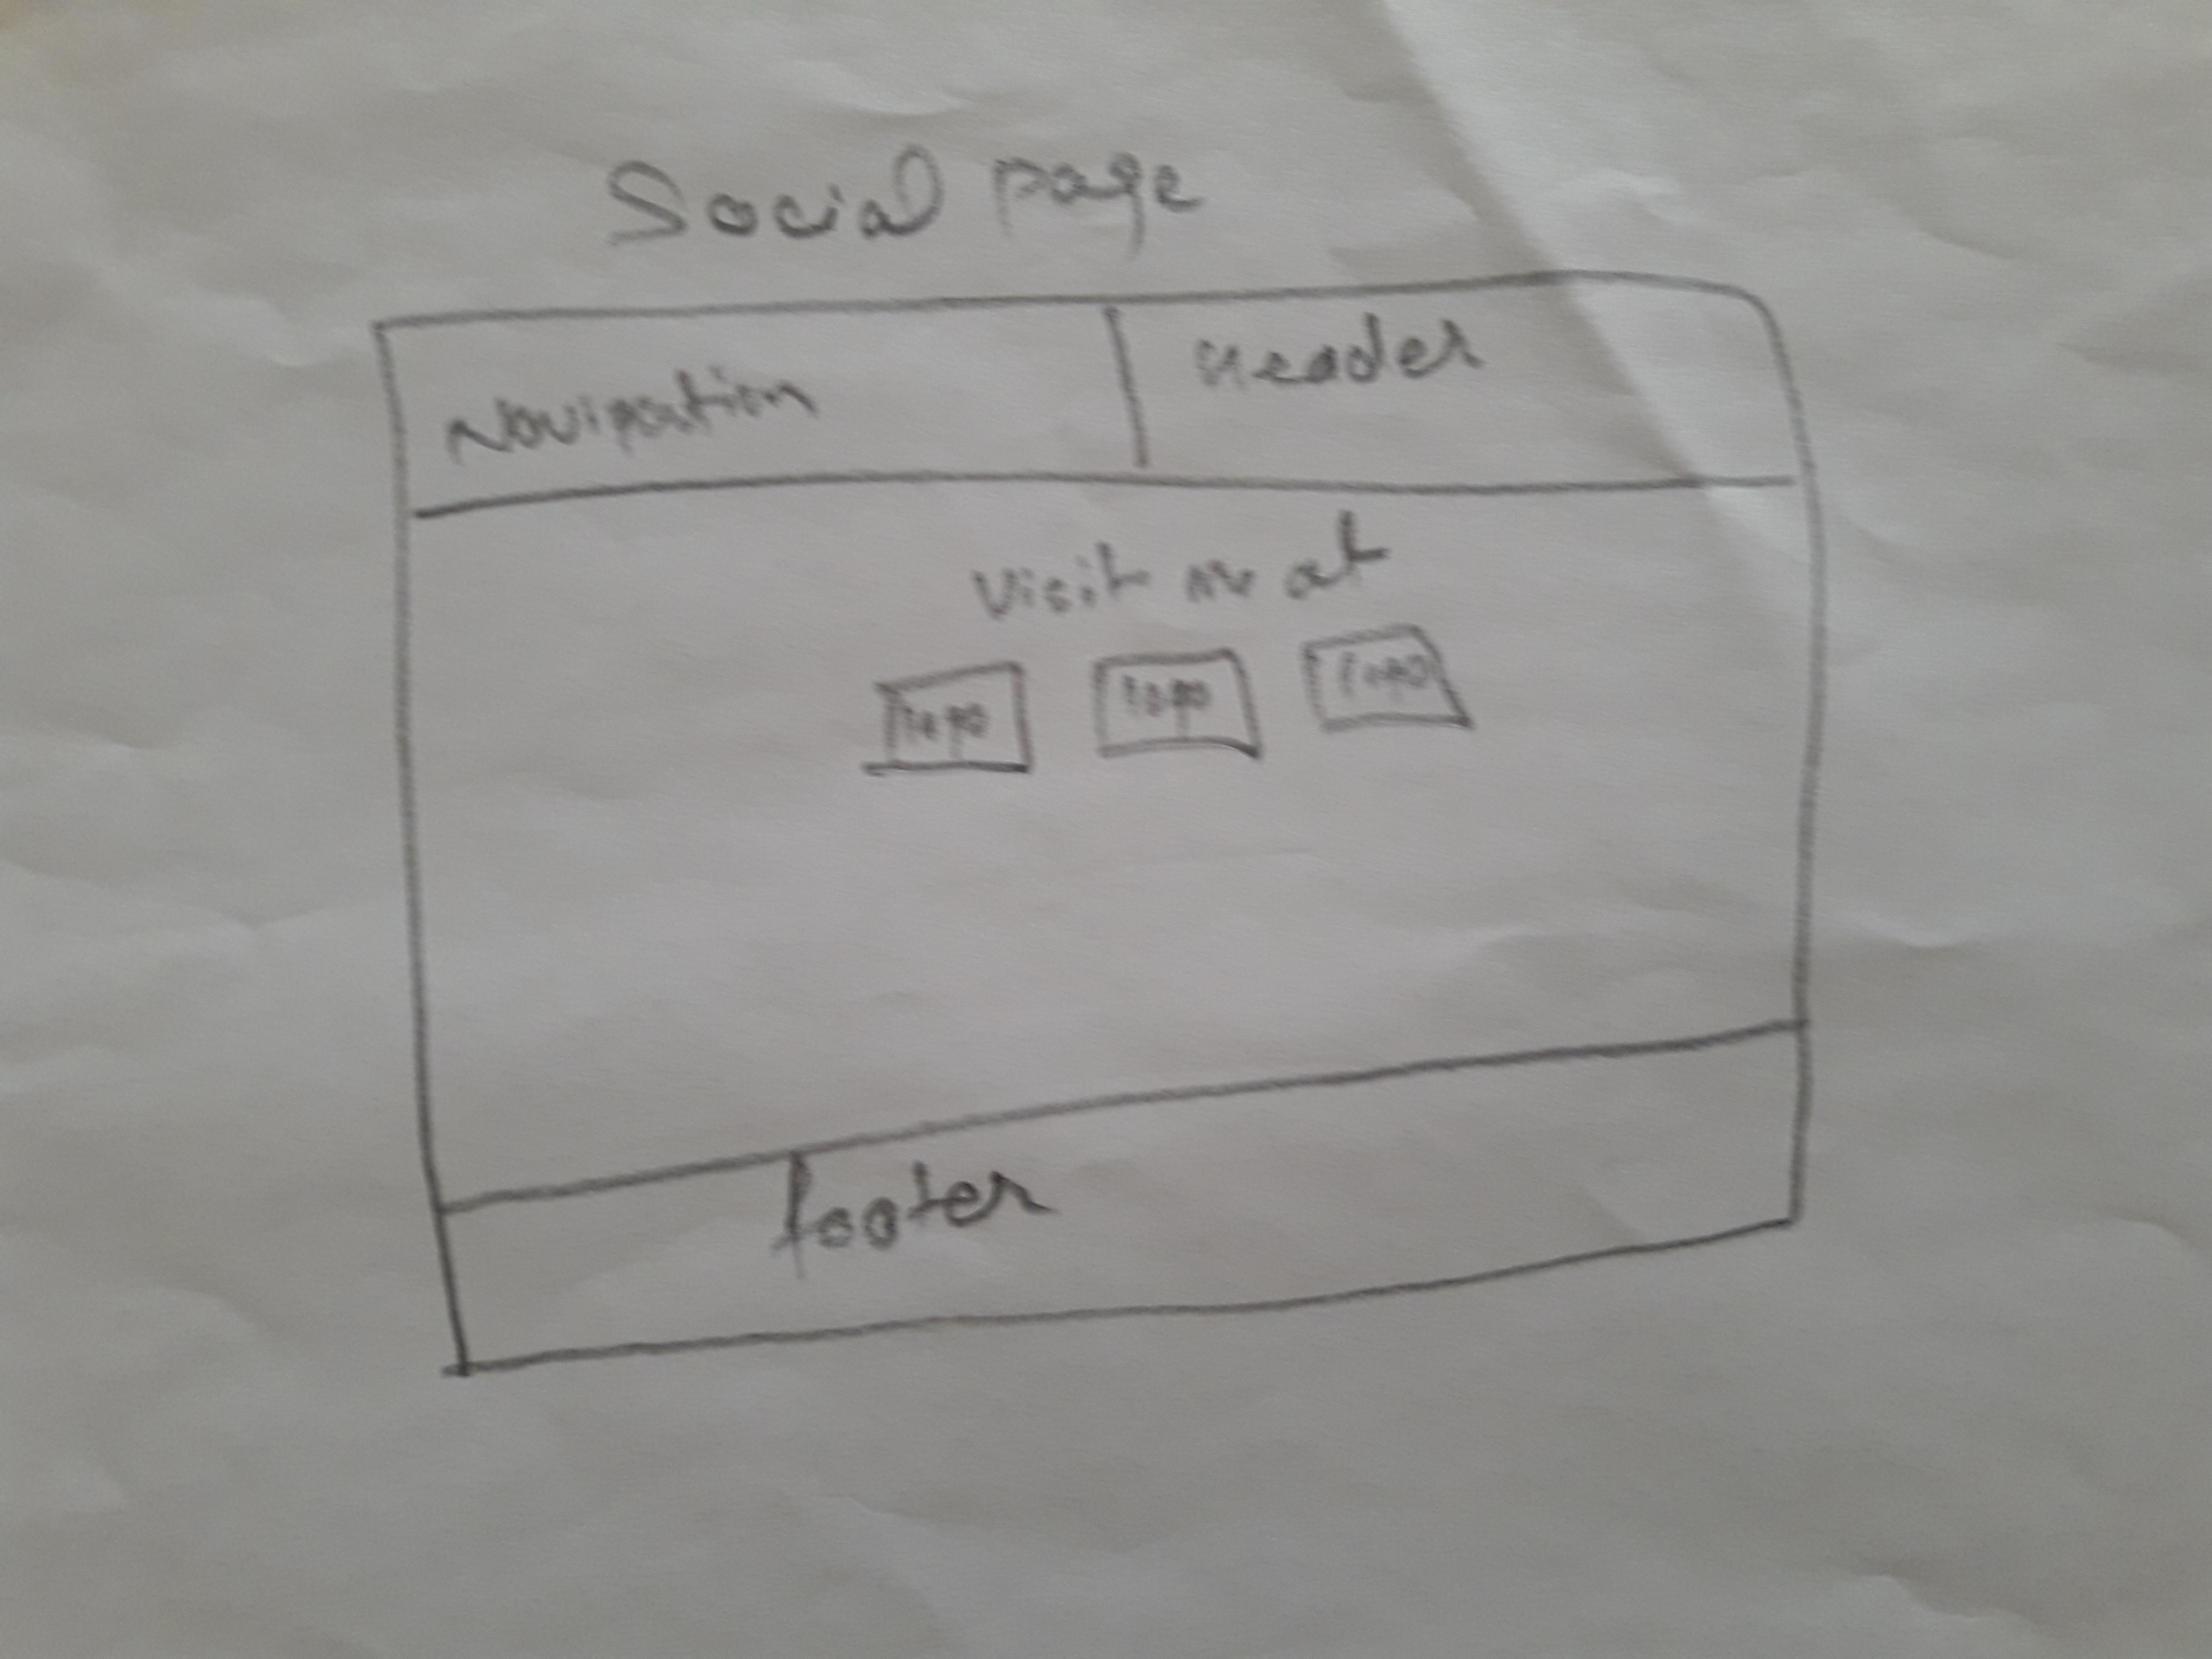 Social page
Navigation
Header
Visit me at
logo logo logo
footer